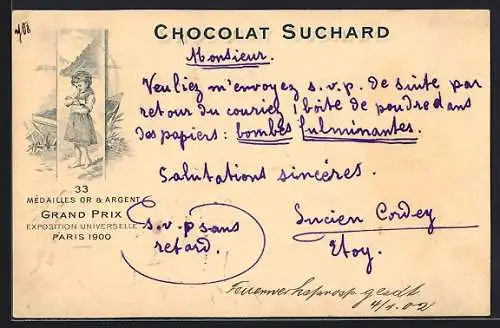 CHOCOLAT SUCHARD
Monsieur.
Veuliez m'envoyez s.v.p. de suite par
retour du courier 1 boîte de poudre dans
des papiers: bombes fulminantes.
Salutations sincères.
33
MÉDAILLES OR & ARGENT
GRAND PRIX
EXPOSITION UNIVERSELLE
PARIS 1900
s.v.p sans
retard.
Lucien Cordey
Etoy.
Feuerwerksprosp. gesdt
4/1.02